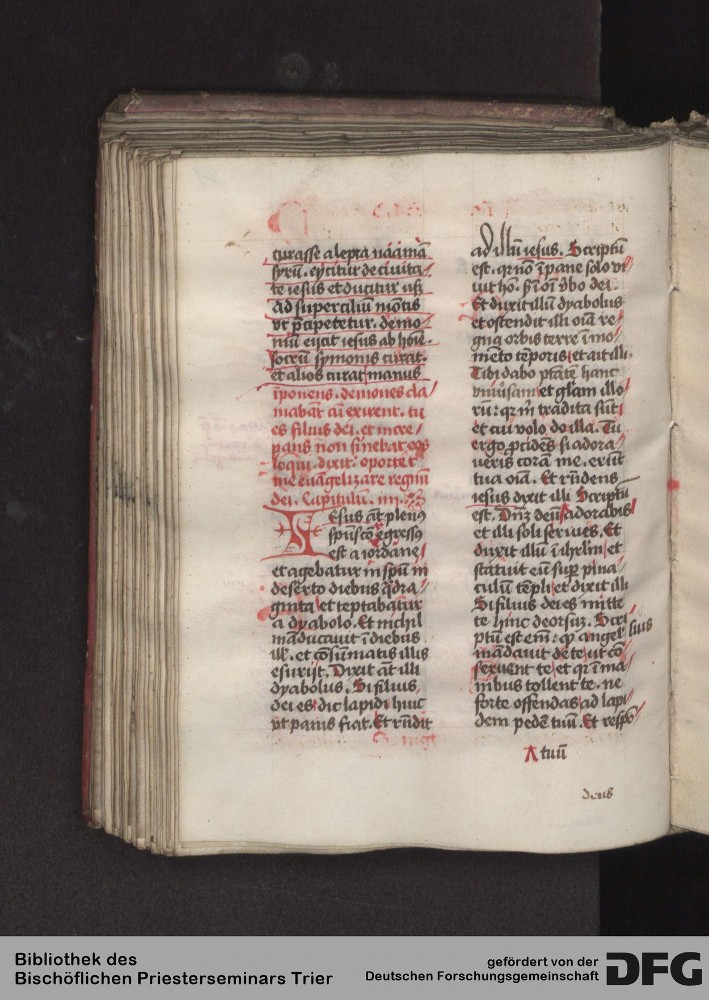 curasse a lepra naamā
syrū. eycitur de ciuita
te iesus et ducitur usq̨
ad superciliū mōtis
vt p̄cipetetur. demo
niū eijcit iesus ab hoīe.
socrū symonis curat.
et alios curat manus
īponens. demones cla
mabāt cū exirent. tu
es filius dei. et incre
pans non sinebat eos
loqui. dixit. oportet
me euāgelizare regnū
dei. Capitulū. iiij.
Iesus āt plenꝯ
spūscō egressꝯ
est a iordane
et agebatur in spū in
deserto diebus q̄dra
ginta et teptabatur
a dyabolo. Et nichil
māducauit ī diebus
ill'. et cōsūmatis illis
esurijt. Dixit āt illi
dyabolus. Si filius
dei es dic lapidi huic
vt panis fiat. Et rn̄dit
ad illū iesus. Scriptū
est. qr nō ī pane solo vi
uit hō. s; ī oī v̄bo dei.
Et duxit illū dyabolus
et ostendit illi oīa re
gna orbis terre ī mo
mēto tēporis et ait illi.
Tibi dabo ptātē hanc
vniūsam et gl̄am illo
rū: qr m̄ tradita sūt
et cui volo do illa. Tu
ergo ꝓcidēs si adora
ueris corā me. erūt
tua oīa. Et rn̄dens
iesus dixit illi Scriptū
est. Dn̄z deū adorabis
et illi soli seruies. Et
duxit illū ī ihrlm̄ et
statuit eū sup̄ pina
culū tēpli et dixit illi
Si filius dei es mitte
te hinc deorsūz. Scri
ptū est em̄: qꝫ angel' suis
mādauit de te ut cō
seruent te et qr ī ma
nibus tollent te. ne
forte offendas ad lapi
dem pedē tuū. Et respō
A tuū
deus
Bibliothek des
Bischöflichen Priesterseminars Trier
gefördert von der
Deutschen Forschungsgemeinschaft
DFG